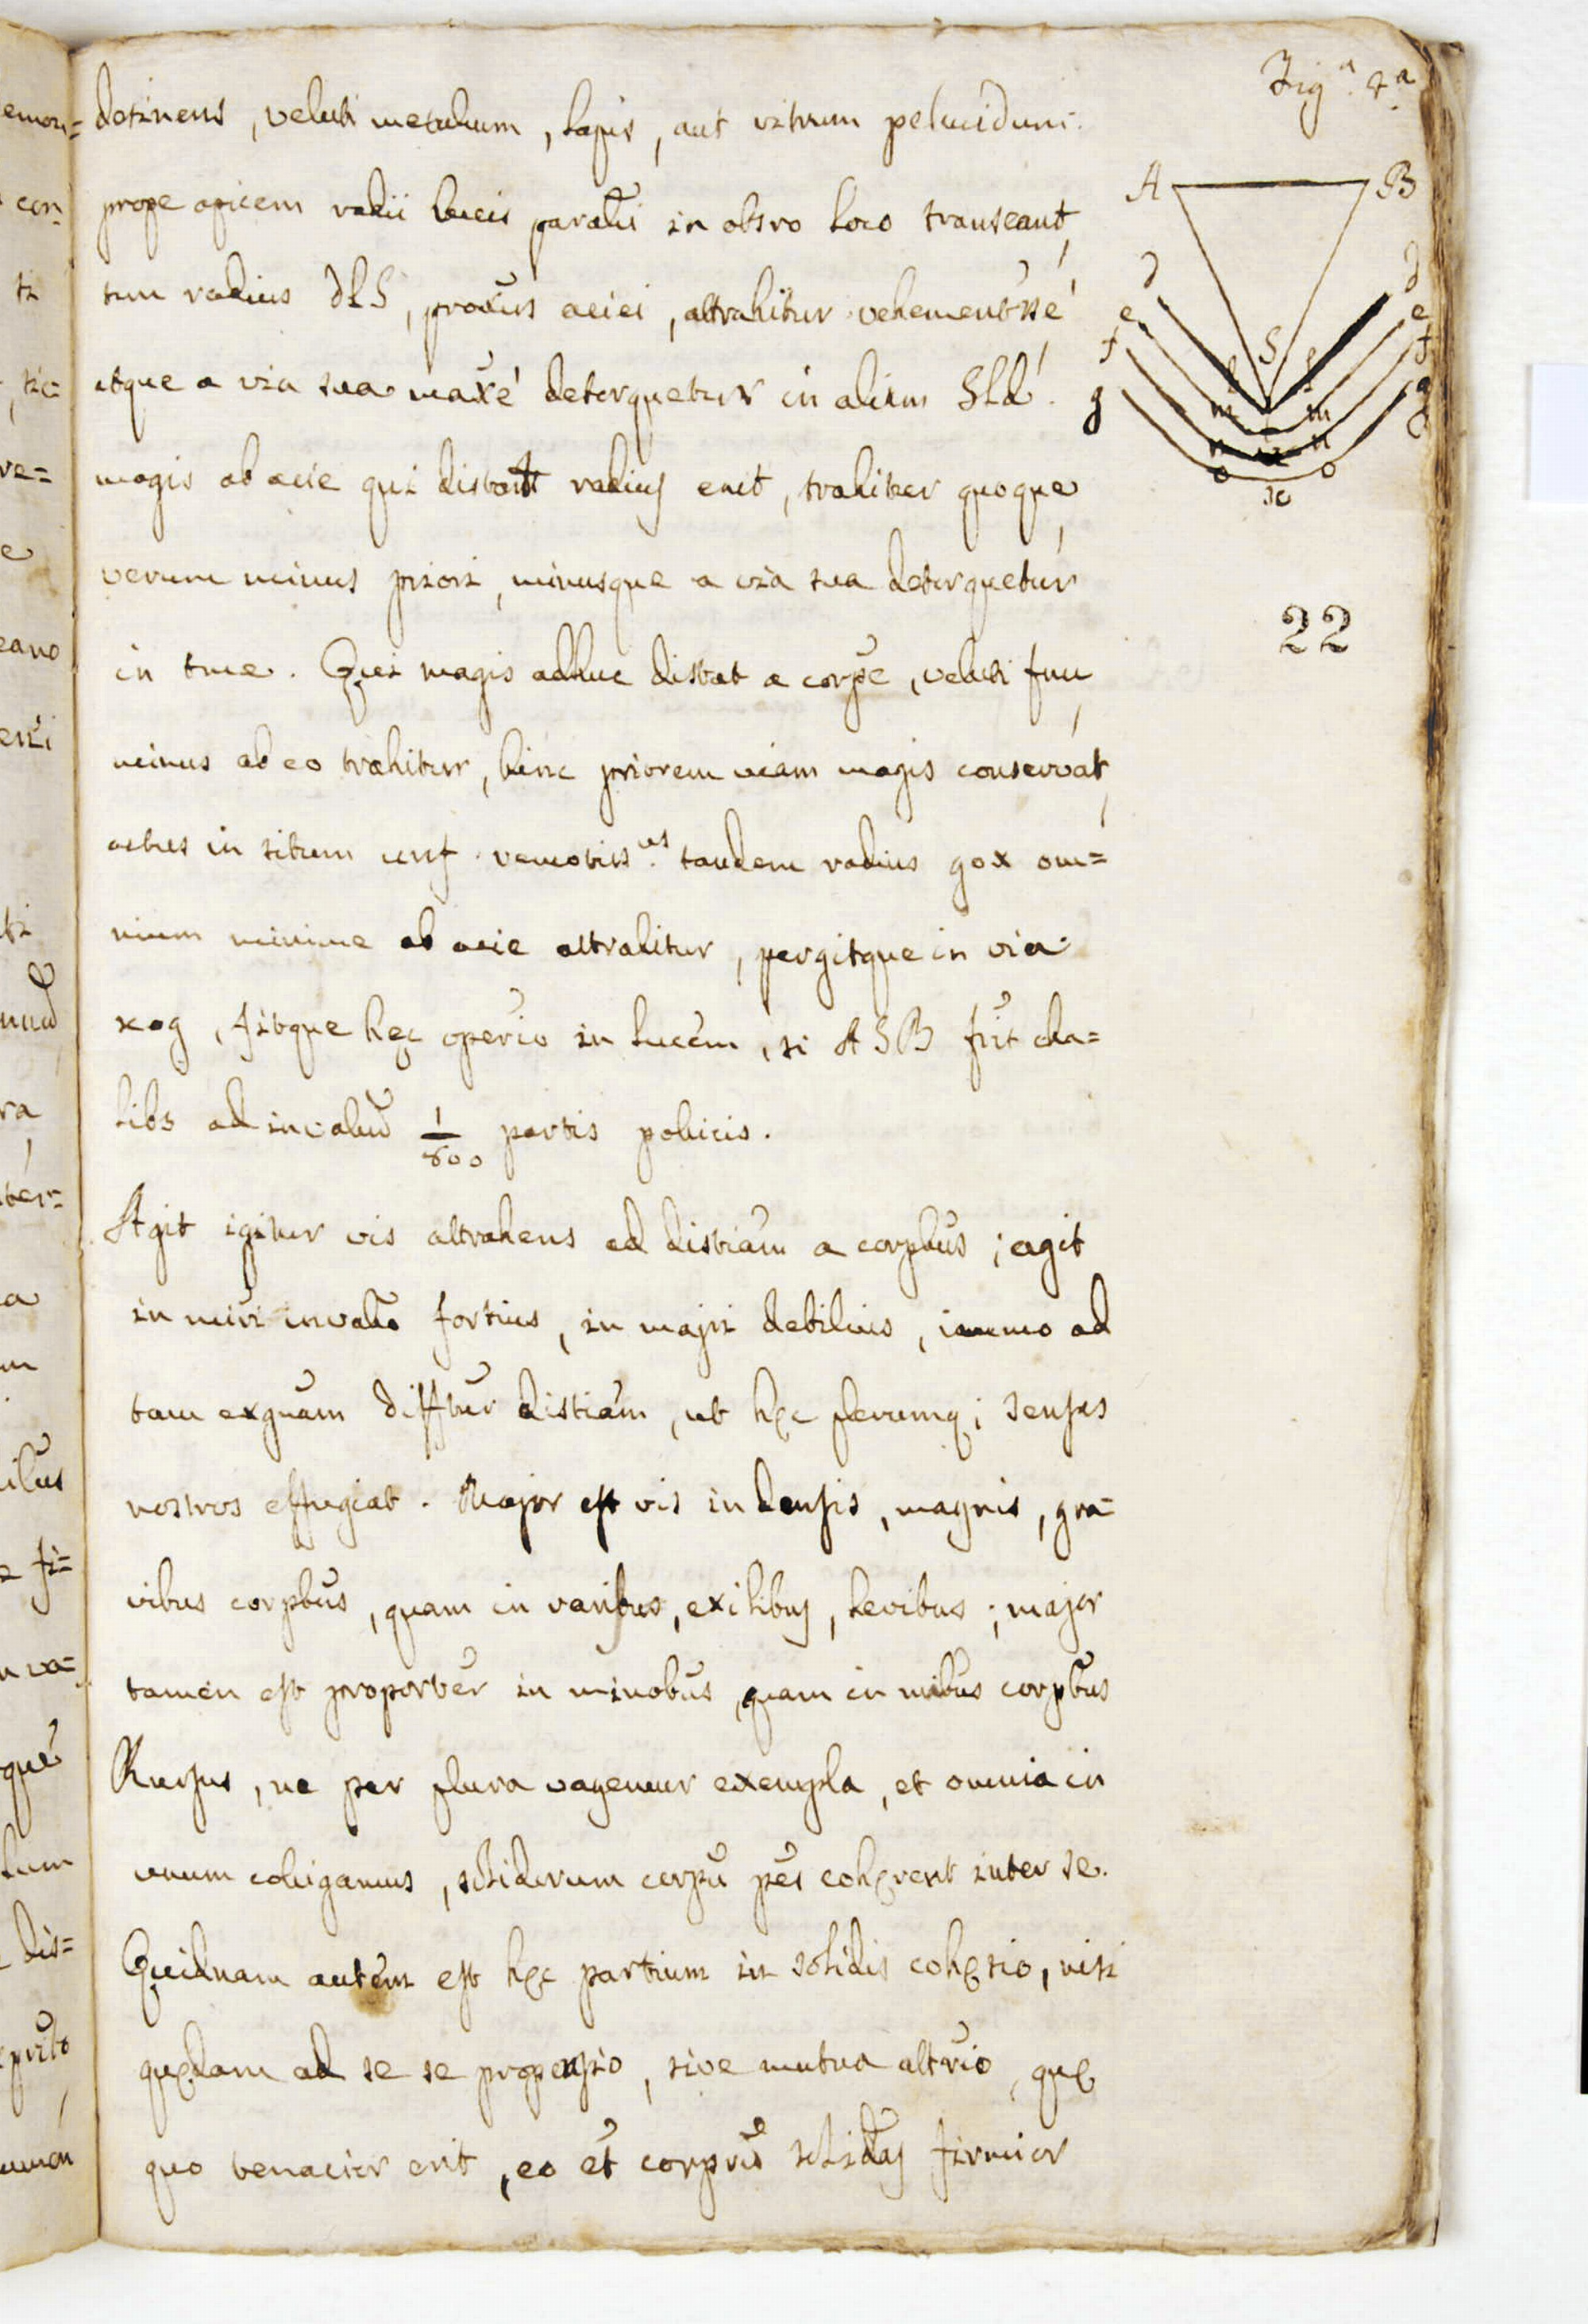 Fig.ª 7.ª
detinens, veluti metallum, lapis, aut vitrum pellucidum.
prope apicem radii lucis paralli in obsro loco transeant,
tum radius dLS, proxus aciei, attrahitur vehementsse,
atque a via sua maxe detorquetur in aliam SLd.
magis ab acie qui distant radius erit, trahitur quoque,
verum minus priori, minusque a via sua detorquetur
in tme. Qui magis adhuc distat a corpe, veluti fnu,
minus ab eo trahitur, hinc priorem viam magis conservat,
actus in situm unf remotius tandem radius gox om=
nium minime ab acie attrahitur, pergitque in via
xog, fitque hęc opertio in lucem, si ASB fuit cha=
libs ad invallum 1/800 partis pollicis.
Agit igitur vis attrahens ad distiam a corpbus; agit
in miri invallo fortius, in majri debilius, immo ad
tam exguam difftur distiam, ut hęc plerumq; sensus
nostros effugiat. Major est vis in densis, magnis, gra=
vibus corpbus, quam in raribus, exilibus, levibus; major
tamen est proporter in minobus quam in mibus corpbus
Rursus, ne per plura vagemur exempla, et omnia in
unum colligamus, solidorum corpu pes cohęrent inter se.
Quidnam autem est hęc partium in solidis cohęsio, nisi
quędam ad se se propensio, sive mutua attrio, quę
quo tenacior erit, eo et corpus solidus firmior
22
A B
d d
e e
f f
g g
S
l l
m m
n n
o o
x